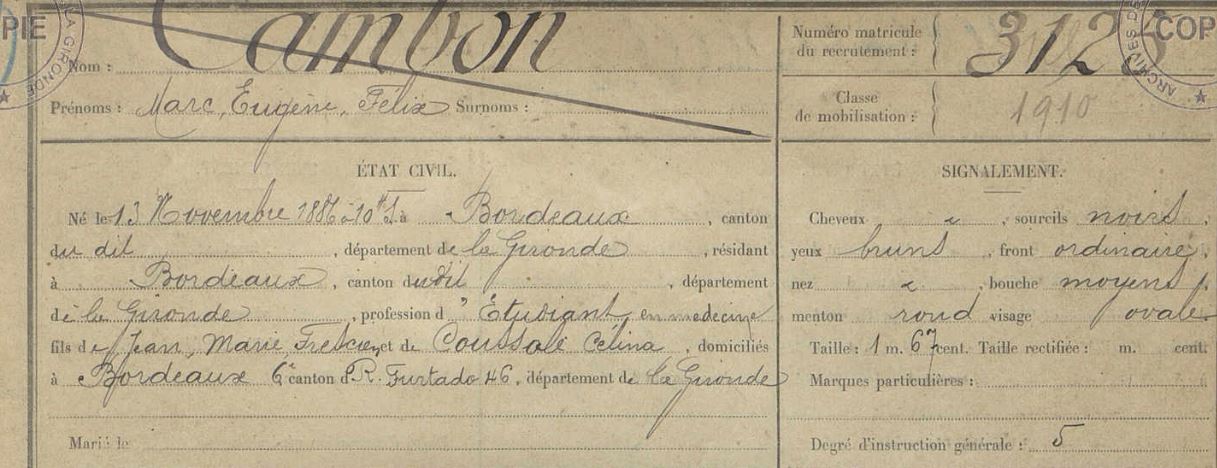 PIE
LA GIRONDE
Nom : Cambon
Prénoms : Marc, Eugène, Félix Surnoms :
Numéro matricule
du recrutement :
312
ARCHIVES DE
COP
Classe
de mobilisation :
1910
ÉTAT CIVIL.
Né le 13 Novembre 1886 à Bordeaux, canton
du dit, département de la Gironde, résidant
à Bordeaux, canton dudit, département
de la Gironde, profession d'Étudiant en medecine
fils de Jean, Marie, et de Célina, domiciliés
à Bordeaux 6e canton d R. Furtado 46, département de la Gironde
Marié le
SIGNALEMENT.
Cheveux ", sourcils noirs,
yeux bruns, front ordinaire,
nez ", bouche moyens,
menton rond visage ovale
Taille : 1 m. 67 cent. Taille rectifiée : m. cent.
Marques particulières :
Degré d'instruction générale : 5